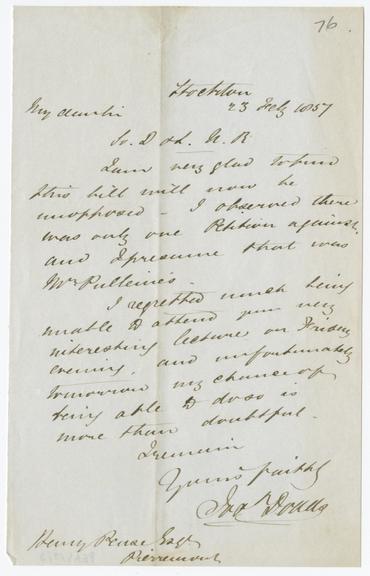 76.
Stockton
23 Feby 1857
My dear Sir
So. D & L. U. R
I am very glad to find
this bill will now be
unopposed - I observed there
was only one Petition against,
and I presume that was
Mr Pulleine's.
I regretted much being
unable to attend your very
interesting lecture on Friday
evening, and unfortunately
tomorrow my chance of
being able to do so is
more than doubtful.
I remain
Yours faithfy
Jos. Dodds
Henry Pease Esqr
Pierremont